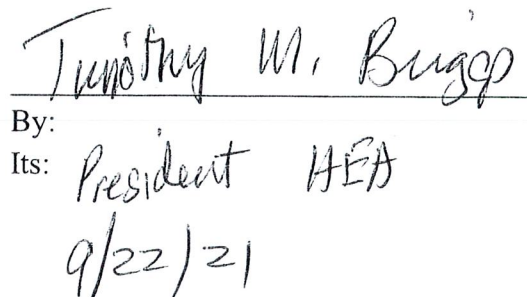 Timothy M. Briggs
By:
Its: President HEA
9/22/21